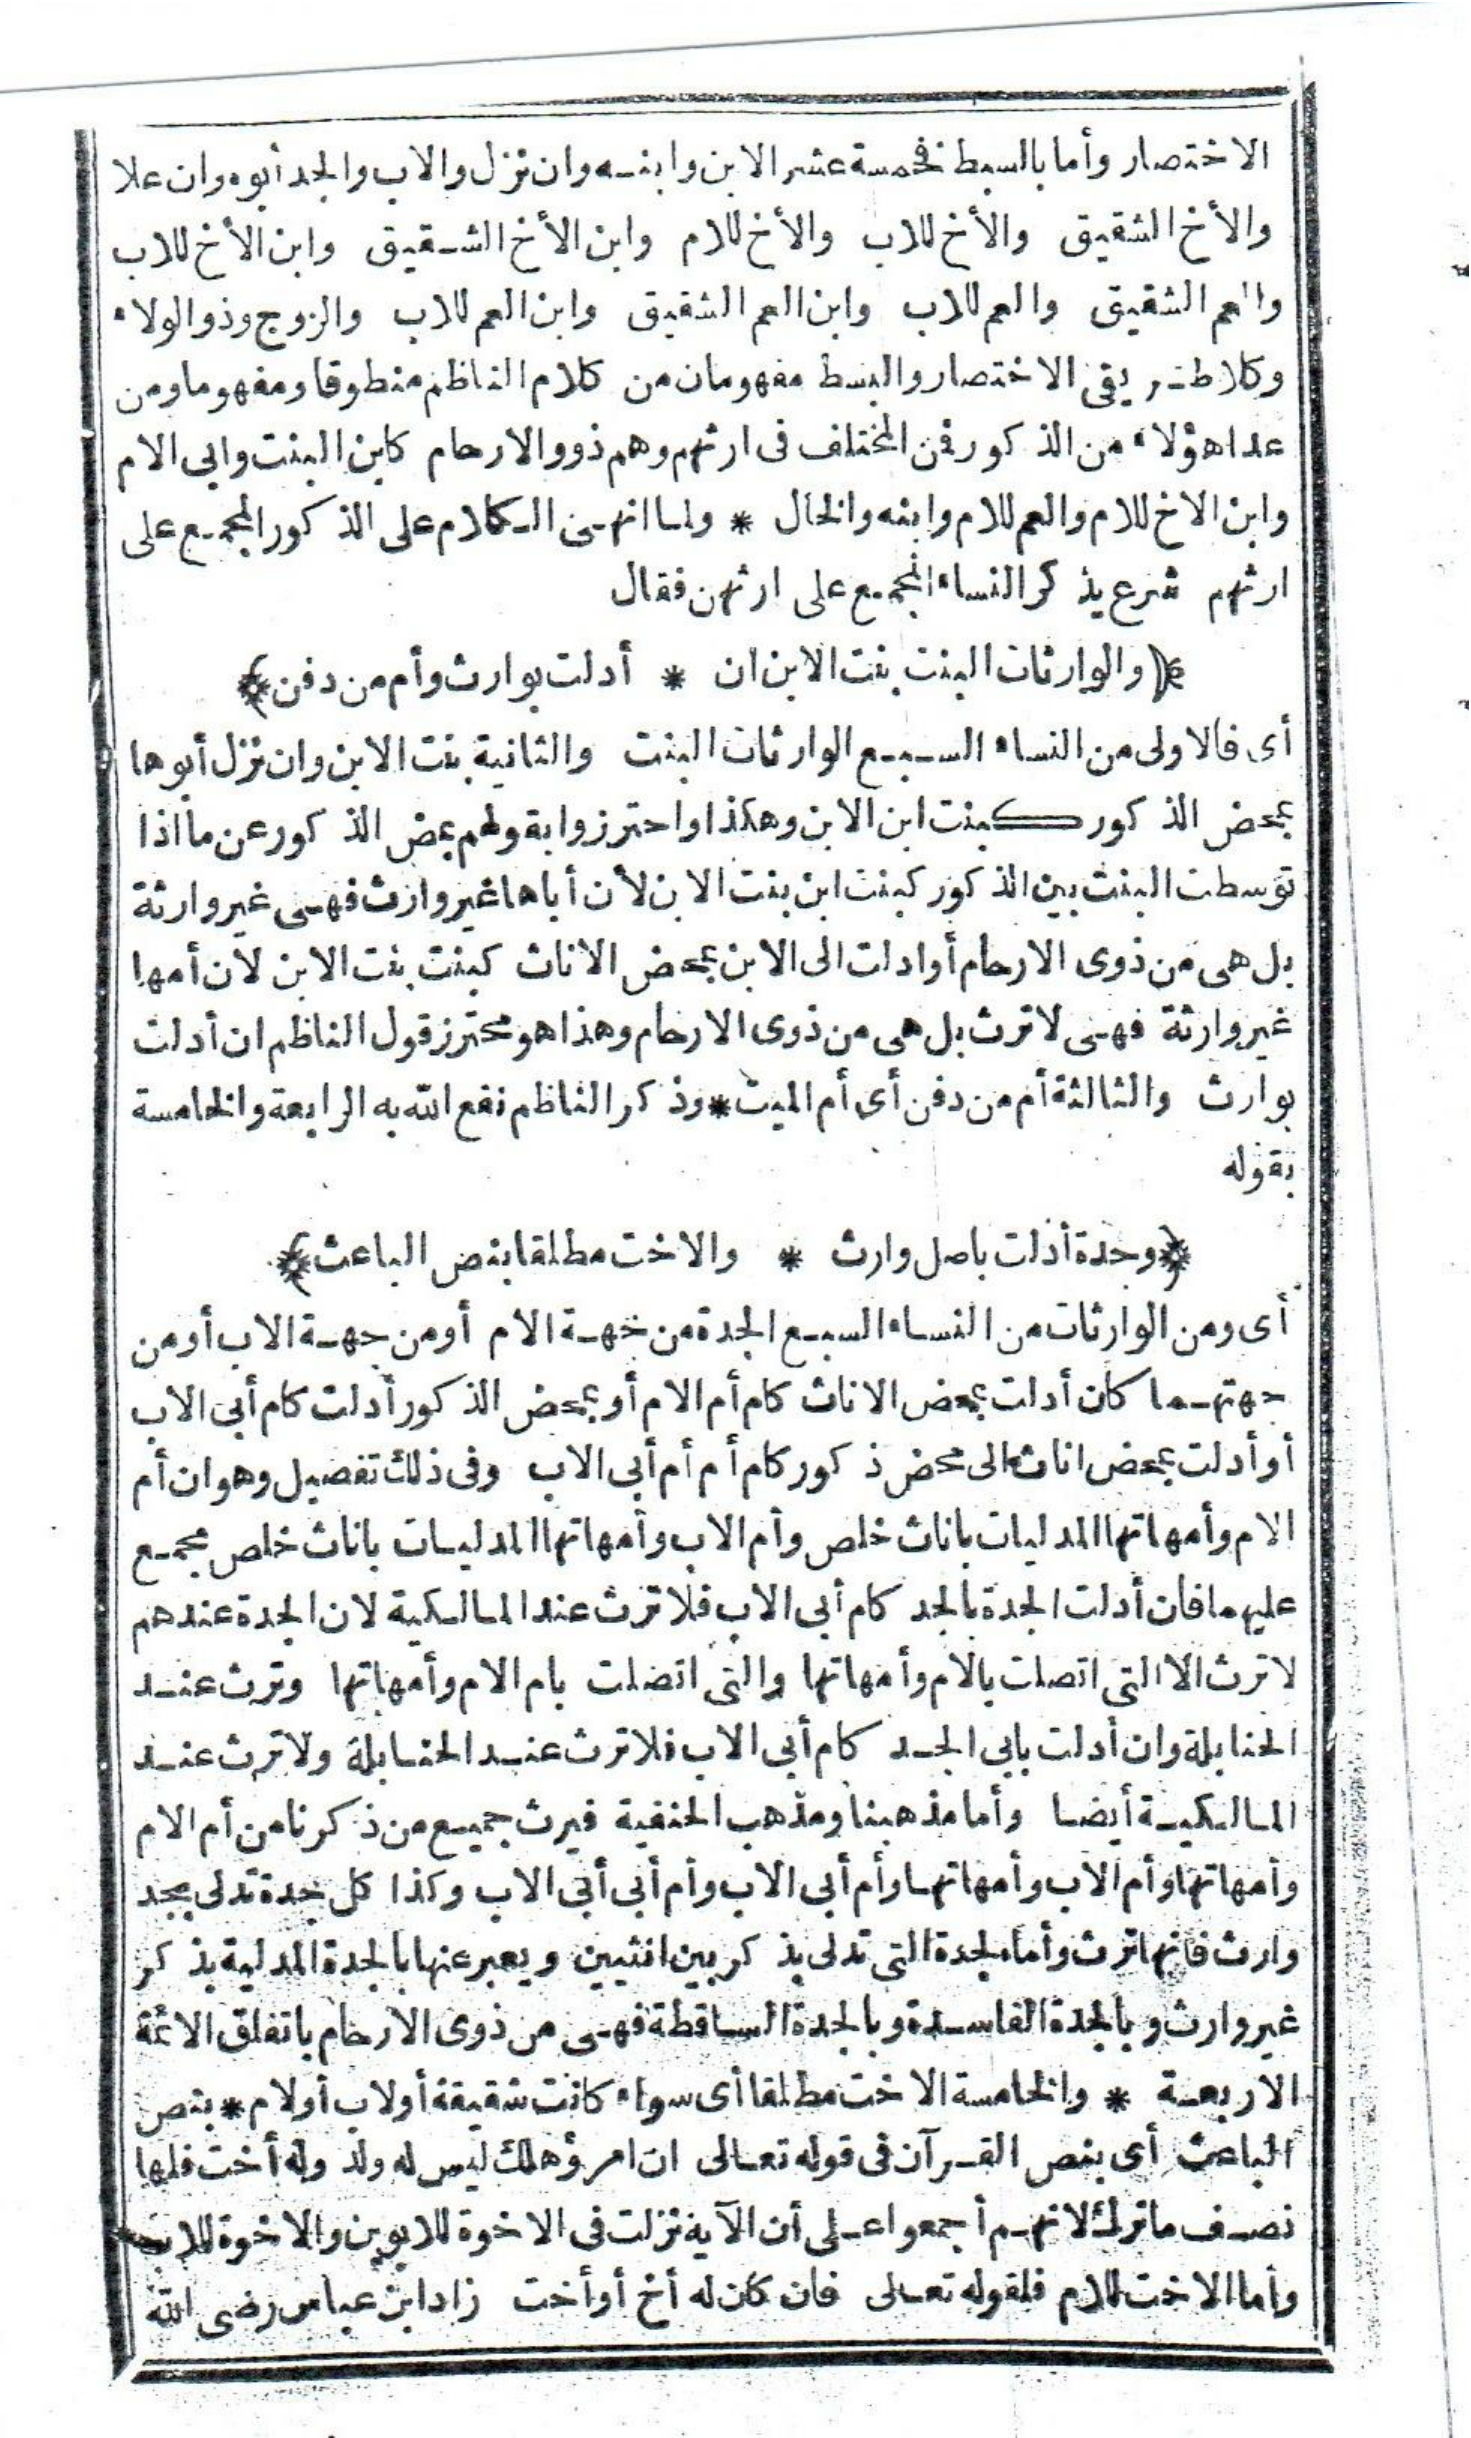 الاختصار وأما بالسبط فخمسة عشر الابن وابنه وان نزل والاب والجد أبوه وان علا
والأخ الشقيق والأخ للاب والأخ للام وابن الأخ الشقيق وابن الأخ للاب
والعم الشقيق والعم للاب وابن العم الشقيق وابن العم للاب والزوج وذو الولاء
وكلا طريقى الاختصار والبسط مفهومان من كلام الناظم منطوقا ومفهوما ومن
عدا هؤلاء من الذكور فمن المختلف فى ارثهم وهم ذوو الارحام كابن البنت وابى الام
وابن الاخ للام والعم للام وابنه والخال * ولما انهى الكلام على الذكور المجمع على
ارثهم شرع يذكر النساء المجمع على ارثهن فقال
﴿والوارثات البنت بنت الابن ان * أدلت بوارث وأم من دفن﴾
أى فالاولى من النساء السبع الوارثات البنت والثانية بنت الابن وان نزل أبوها
بمحض الذكور كبنت ابن الابن وهكذا واحترزوا بقولهم بمحض الذكور عن ما اذا
توسطت البنت بين الذكور كبنت ابن بنت الابن لأن أباها غير وارث فهى غير وارثة
بل هى من ذوى الارحام أو ادلت الى الابن بمحض الاناث كبنت بنت الابن لأن أمها
غير وارثة فهى لا ترث بل هى من ذوى الارحام وهذا هو محترز قول الناظم ان أدلت
بوارث والثالثة أم من دفن أى أم الميت * وذكر الناظم نفع الله به الرابعة والخامسة
بقوله
﴿وجدة أدلت باصل وارث * والاخت مطلقا بنص الباعث﴾
أى ومن الوارثات من النساء السبع الجدة من جهة الام أو من جهة الاب أو من
جهتهما كان أدلت بمحض الاناث كام أم الام أو بمحض الذكور أدلت كام أبى الاب
أو أدلت بمحض اناث الى محض ذكور كام أم أم أبى الاب وفى ذلك تفصيل وهو ان أم
الام وأمهاتها المدليات باناث خلص وأم الاب وأمهاتها المدليات باناث خلص مجمع
عليهما فان أدلت الجدة بالجد كام أبى الاب فلا ترث عند المالكية لان الجدة عندهم
لا ترث الا التى اتصلت بالام وأمهاتها والتى اتصلت بام الام وأمهاتها وترث عند
الحنابلة وان أدلت بابى الجد كام أبى الاب فلا ترث عند الحنابلة ولا ترث عند
المالكية أيضا وأما مذهبنا ومذهب الحنفية فيرث جميع من ذكرنا من أم الام
وأمهاتها وأم الاب وأمهاتها وأم أبى الاب وأم أبى أبى الاب وكذا كل جدة تدلى بجد
وارث فانها ترث وأما الجدة التى تدلى بذكر بين انثيين ويعبر عنها بالجدة المدلية بذكر
غير وارث وبالجدة الفاسدة وبالجدة الساقطة فهى من ذوى الارحام باتفاق الائمة
الاربعة * والخامسة الاخت مطلقا أى سواء كانت شقيقة أو لاب أو لام * بنص
الباعث أى بنص القرآن فى قوله تعالى ان امرؤ هلك ليس له ولد وله أخت فلها
نصف ما ترك لانهم أجمعوا على أن الآية نزلت فى الاخوة للابوين والاخوة للاب
وأما الاخت للام فلقوله تعالى فان كان له أخ أو أخت زاد ابن عباس رضى الله